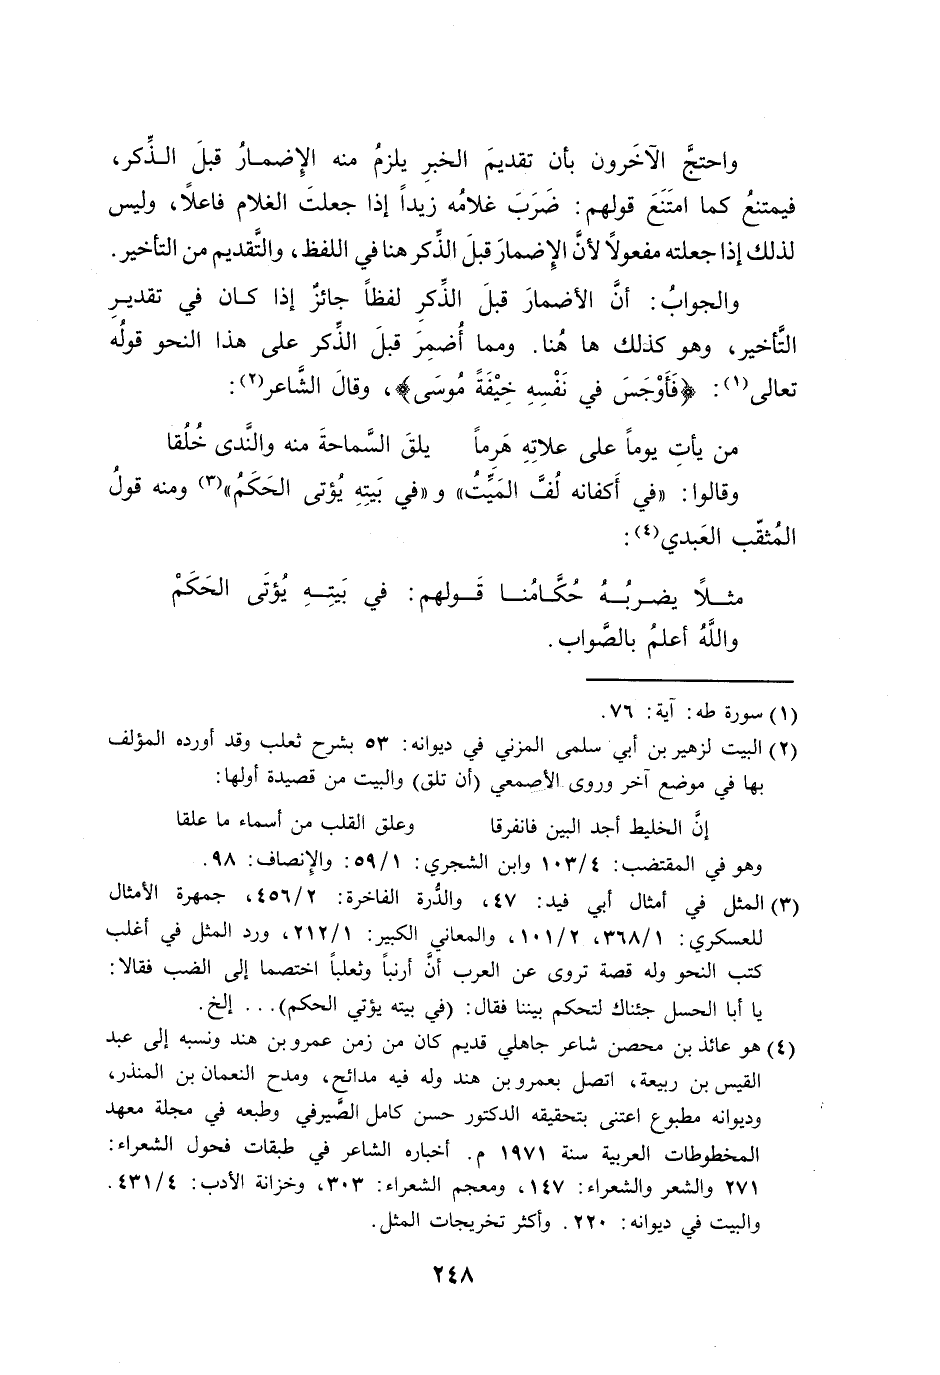 واحتجَّ الآخَرون بأن تقديمَ الخبرِ يلزمُ منه الإِضمـارُ قبلَ الـذِّكر،
فيمتنعُ كما امتَنَعَ قولهم: ضَرَبَ غلامُه زيداً إذا جعلتَ الغلام فاعلًا، وليس
لذلك إذا جعلته مفعولًا لأنَّ الإِضمارَ قبلَ الذِّكر هنا في اللفظ، والتَّقديم من التأخير.
والجوابُ: أنَّ الأضمارَ قبلَ الذِّكرِ لفظاً جائزٌ إذا كـان في تقديرِ
التَّأخير، وهو كذلك ها هُنا. ومما أُضمِرَ قبلَ الذِّكر على هذا النحو قولُه
تعالى(١): ﴿فَأَوْجَسَ في نَفْسِهِ خِيْفَةً مُوسَى﴾، وقالَ الشَّاعر(٢):
من يأتِ يوماً على علاتِهِ هَرِماً    يلقَ السَّماحةَ منه والنَّدى خُلُقا
وقالوا: «في أَكفانه لُفَّ المَيِّتُ» و«في بَيتِهِ يُؤتى الحَكَمُ»(٣) ومنه قولُ
المُثقّب العَبدي(٤):
مثـلًا يضـربُـهُ حُكَّـامُنـا قَـولهم: في بَيتِـهِ يُؤتَى الحَكَمْ
واللَّهُ أعلمُ بالصَّواب.
(١) سورة طه: آية: ٧٦.
(٢) البيت لزهير بن أبي سلمى المزني في ديوانه: ٥٣ بشرح ثعلب وقد أورده المؤلف
بها في موضع آخر وروى الأصمعي (أن تلق) والبيت من قصيدة أولها:
إنَّ الخليط أجد البين فانفرقا    وعلق القلب من أسماء ما علقا
وهو في المقتضب: ١٠٣/٤ وابن الشجري: ٥٩/١: والإِنصاف: ٩٨.
(٣) المثل في أمثال أبي فيد: ٤٧، والدُّرة الفاخرة: ٤٥٦/٢، جمهرة الأمثال
للعسكري: ٣٦٨/١، ١٠١/٢، والمعاني الكبير: ٢١٢/١، ورد المثل في أغلب
كتب النحو وله قصة تروى عن العرب أنَّ أرنباً وثعلباً اختصما إلى الضب فقالا:
يا أبا الحسل جئناك لتحكم بيننا فقال: (في بيته يؤتي الحكم)... إلخ.
(٤) هو عائذ بن محصن شاعر جاهلي قديم كان من زمن عمرو بن هند ونسبه إلى عبد
القيس بن ربيعة، اتصل بعمرو بن هند وله فيه مدائح، ومدح النعمان بن المنذر،
وديوانه مطبوع اعتنى بتحقيقه الدكتور حسن كامل الصَّيرفي وطبعه في مجلة معهد
المخطوطات العربية سنة ١٩٧١ م. أخباره الشاعر في طبقات فحول الشعراء:
٢٧١ والشعر والشعراء: ١٤٧، ومعجم الشعراء: ٣٠٣، وخزانة الأدب: ٤٣١/٤.
والبيت في ديوانه: ٢٢٠. وأكثر تخريجات المثل.
٢٤٨